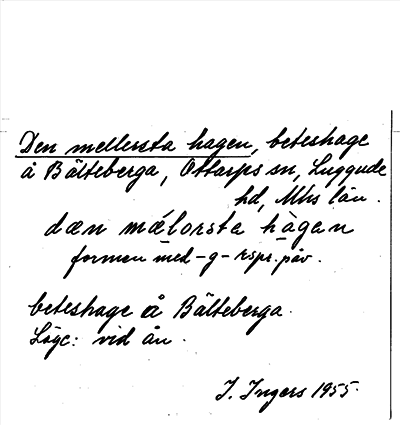 Den mellersta hagen, beteshage
å Bälteberga, Ottarps sn, Luggude
hd, Mhs län.
dæn mǽlorsta hàgen
formen med -g- rspr. påv.
beteshage å Bälteberga.
Läge: vid ån.
I. Ingers 1955.